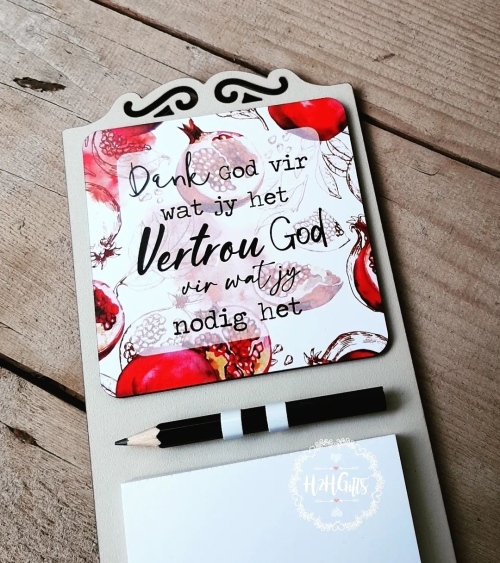 Dank God vir
wat jy het
Vertrou God
vir wat jy
nodig het
H&HGifts